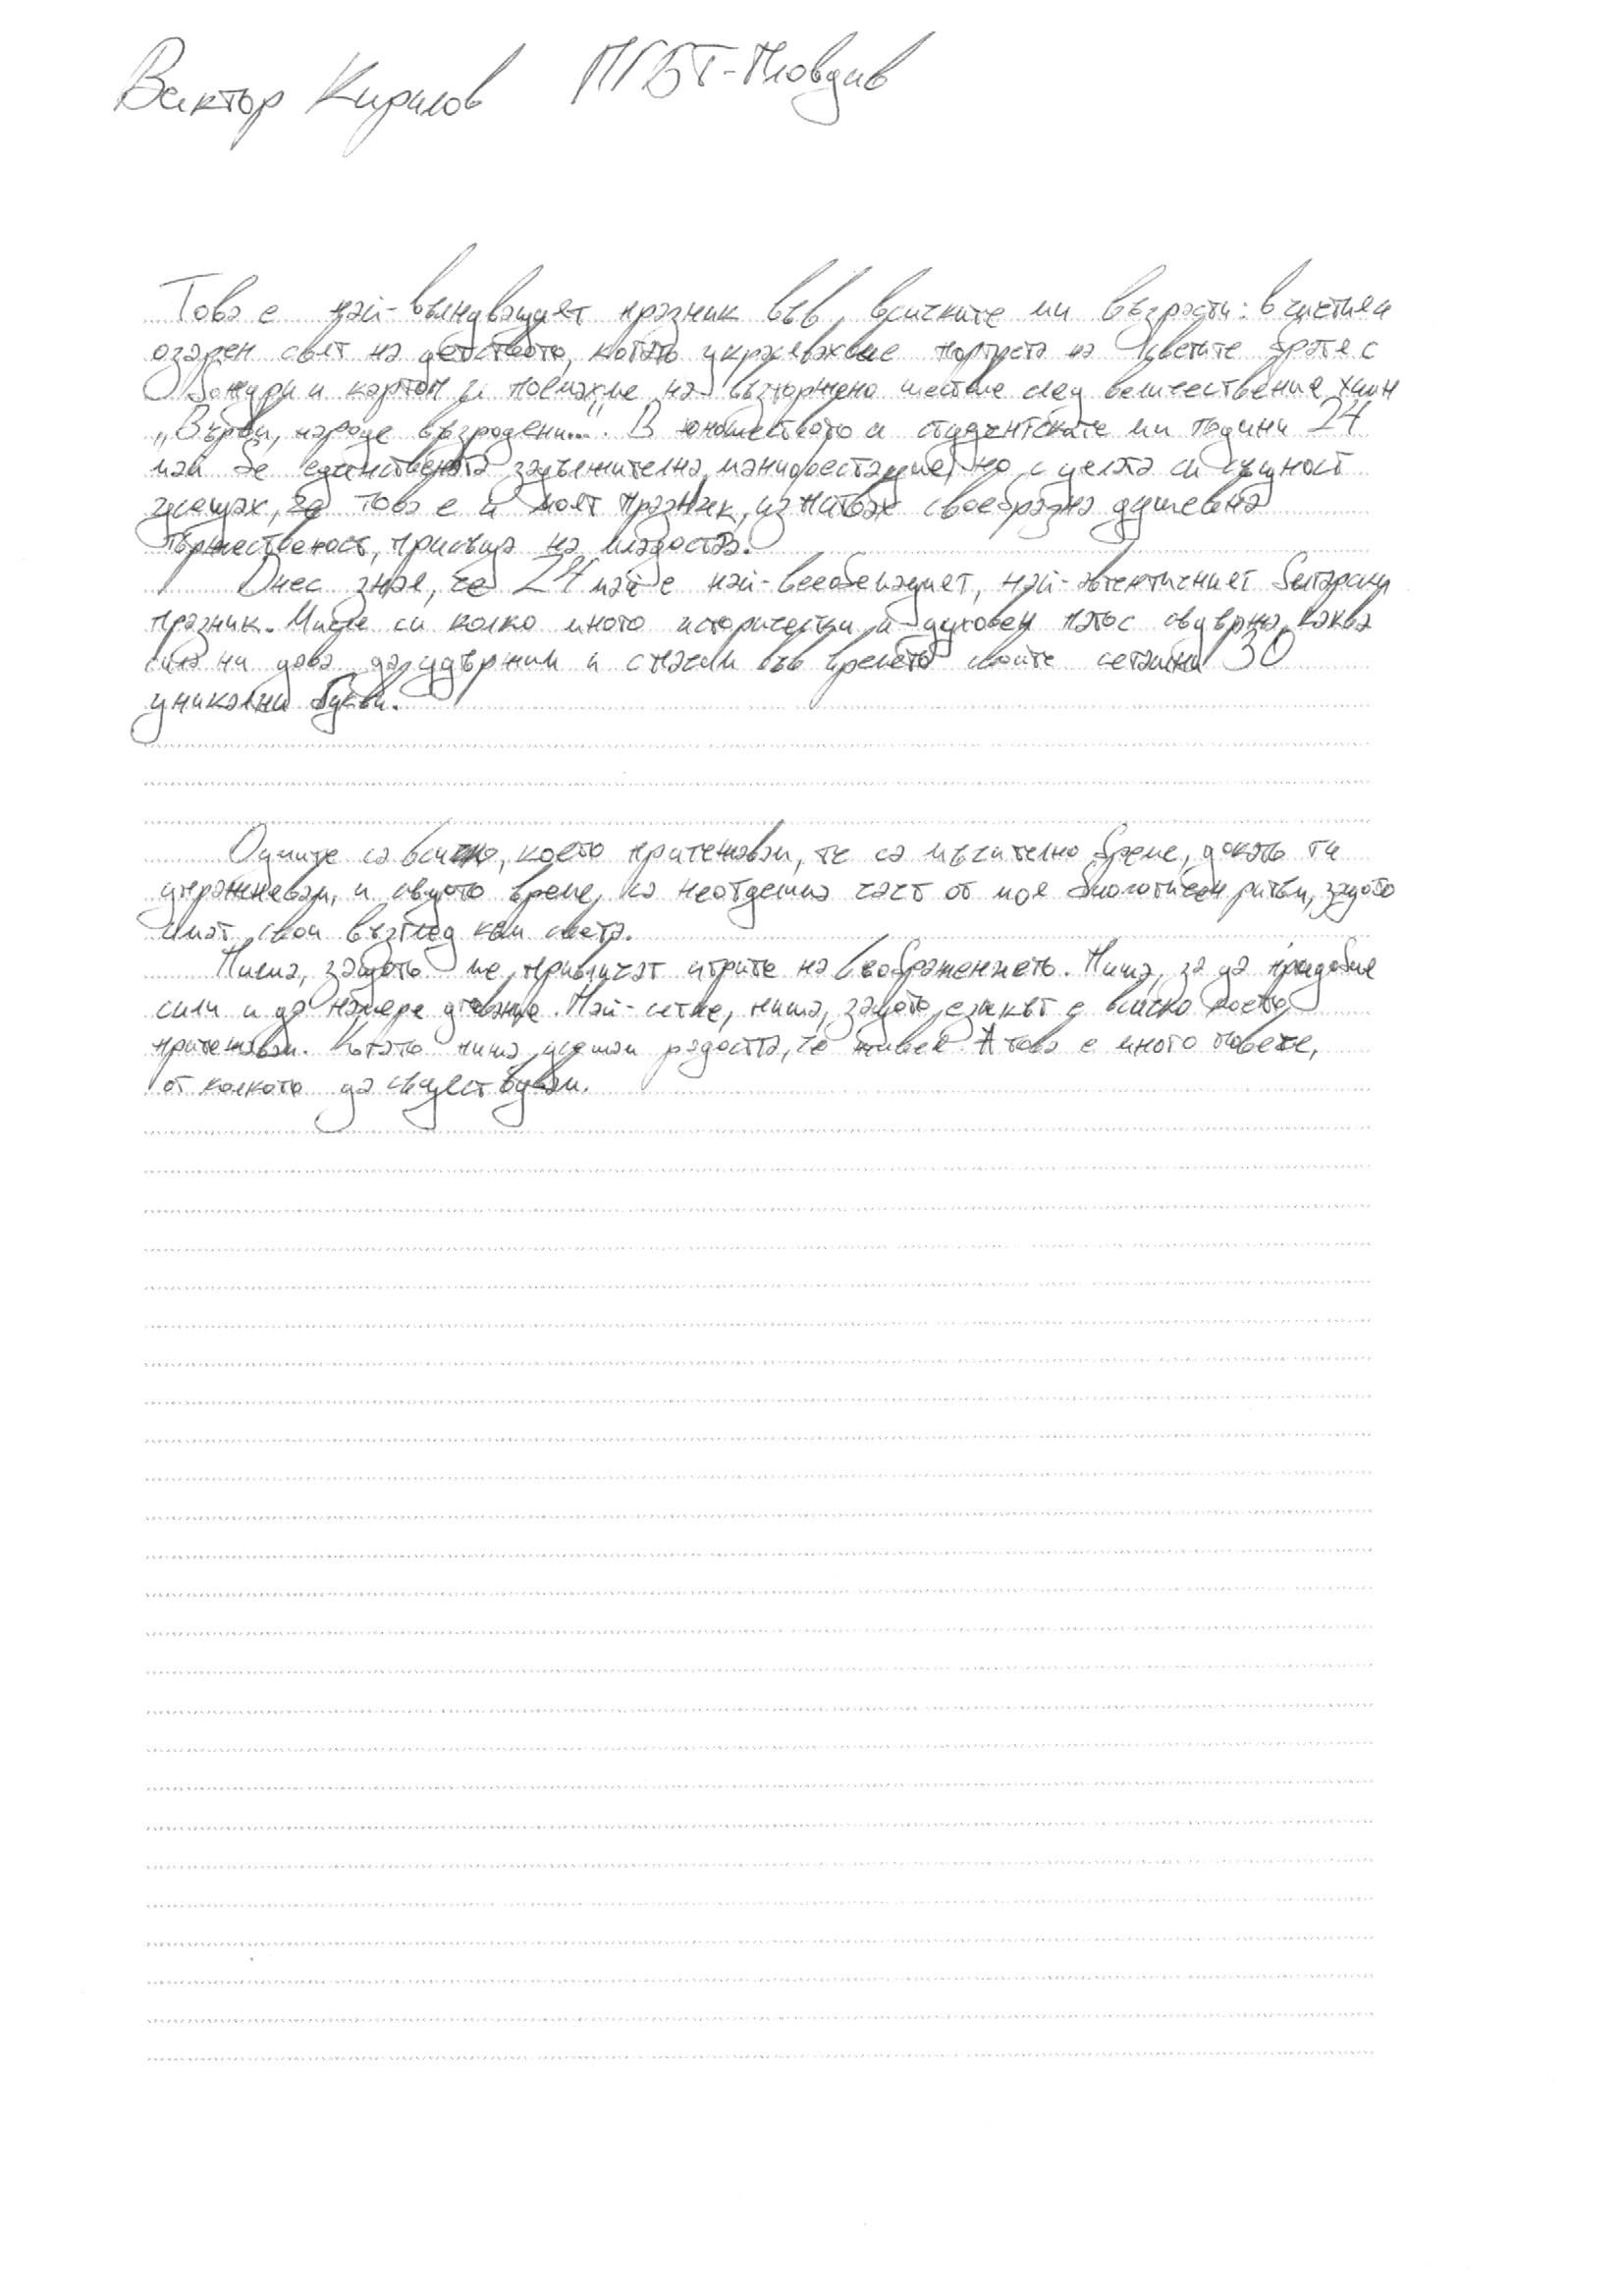 Виктор Кирилов ПГБТ-Пловдив
Това е най-вълнуващият празник във всичките ми възрасти: в чистия и
озарен свят на детството, когато украсявахме портрета на Светите братя с
божури и картон и поемахме на възторжено шествие след величествения химн
„Върви, народе възродени...". В юношеството и студентските ми години 24
май бе единствената задължителна манифестация, но с цялата си същност
усещах, че това е и моят празник, изпитвах своеобразна душевна
тържественост, присъща на младостта.
Днес зная, че 24 май е най-всеобемащият, най-автентичният български
празник. Мисля си колко много исторически и духовен патос съдържа, каква
сила ни дава да удържим и спасим във времето своите сегашни 30
уникални букви.
Думите са всичко, което притежавам, те са мъчително бреме, докато ги
упражнявам, и в същото време, са неотделима част от моя биологичен ритъм, защото
имат свой възглед към света.
Пиша, защото ме привличат игрите на въображението. Пиша, за да придобия
сили и да намеря утовище. Най-сетне, пиша, защото езикът е всичко което
притежавам. Когато пиша усещам радостта, че живея. А това е много повече,
от колкото да съществувам.